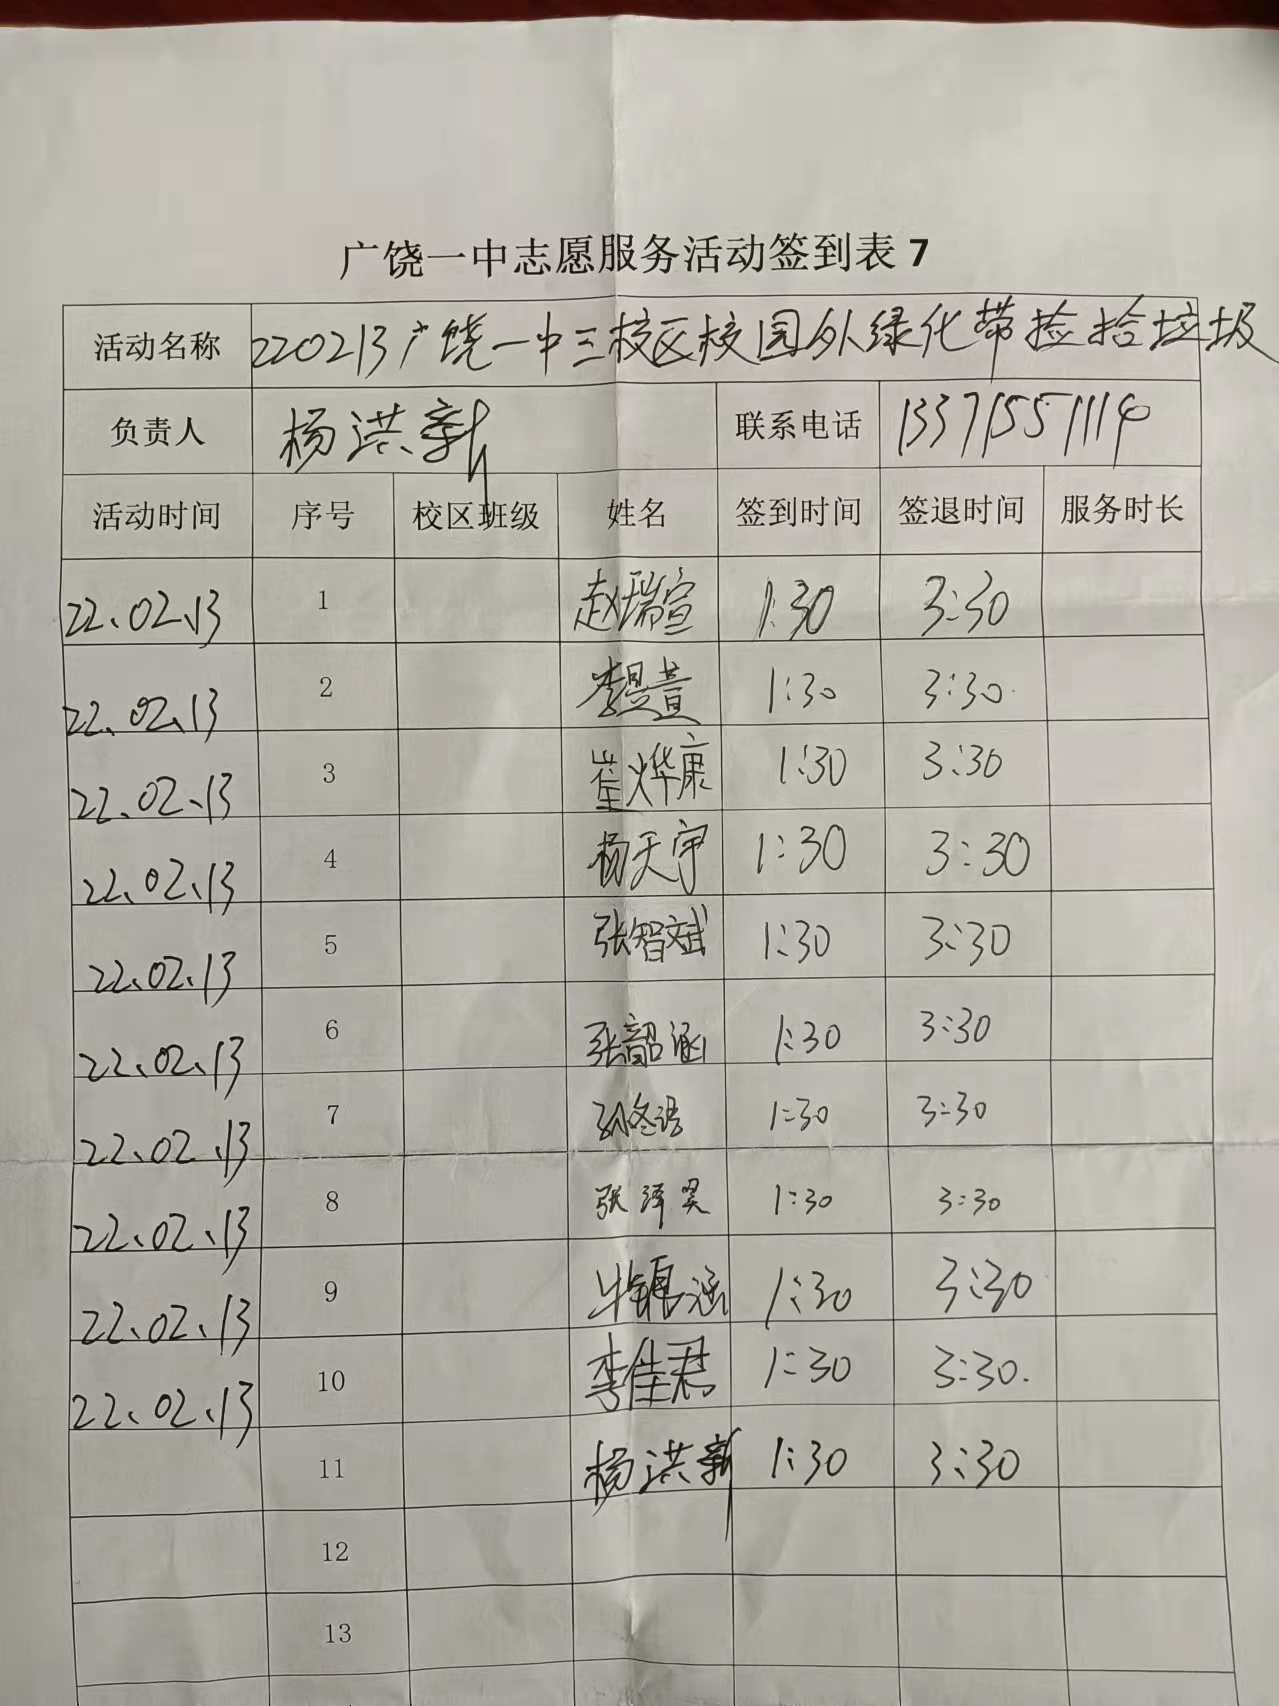 广饶一中志愿服务活动签到表 7
活动名称 220213广饶一中三校区校园外绿化带捡拾垃圾
负责人 杨洪新 联系电话 13371551114
活动时间 序号 校区班级 姓名 签到时间 签退时间 服务时长
22.02.13 1 赵瑞宣 1:30 3:30
22.02.13 2 1:30 3:30
22.02.13 3 崔烨康 1:30 3:30
22.02.13 4 杨天宇 1:30 3:30
22.02.13 5 张智斌 1:30 3:30
22.02.13 6 张韶涵 1:30 3:30
22.02.13 7 1:30 3:30
22.02.13 8 张泽昊 1:30 3:30
22.02.13 9 1:30 3:30
22.02.13 10 李佳君 1:30 3:30.
11 杨洪新 1:30 3:30
12
13